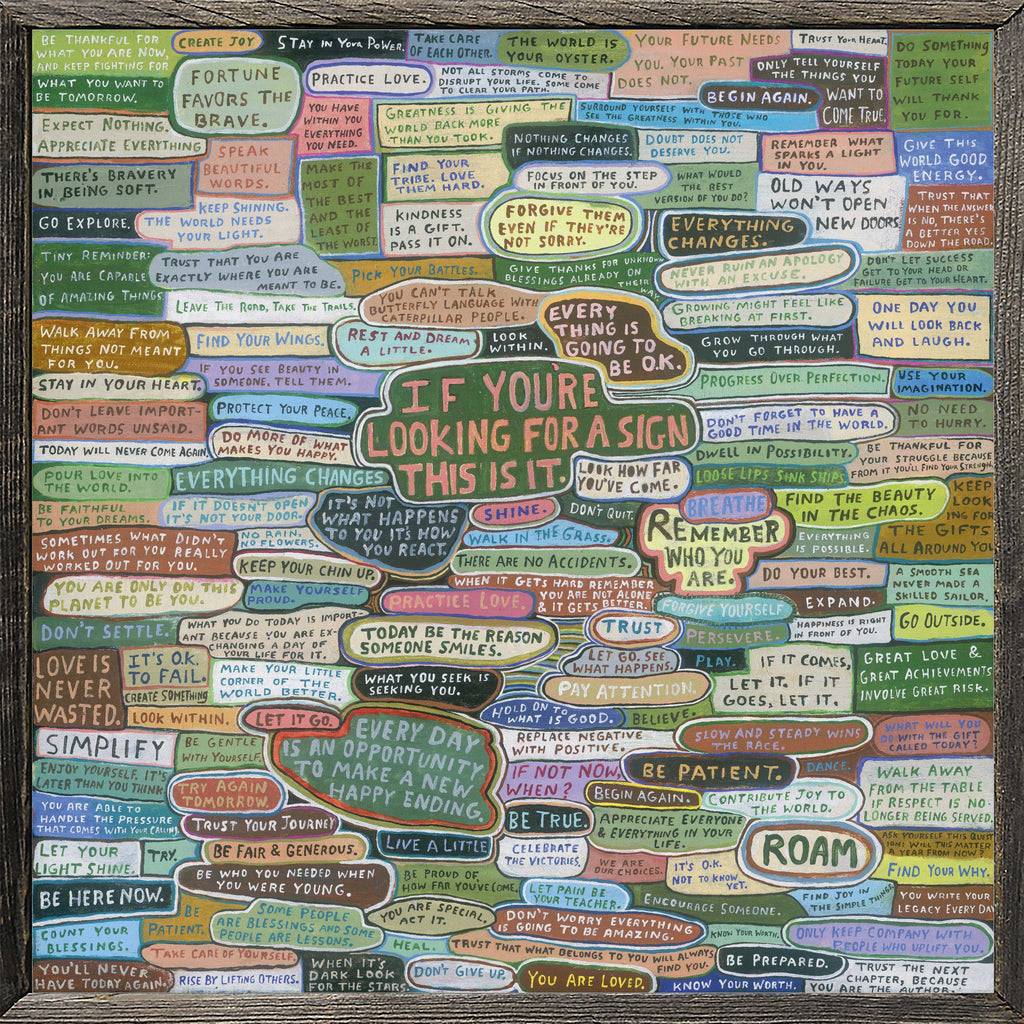 BE THANKFUL FOR
WHAT YOU ARE NOW,
AND KEEP FIGHTING FOR
WHAT YOU WANT TO
BE TOMORROW.
CREATE JOY
STAY IN YOUR POWER.
TAKE CARE
OF EACH OTHER.
THE WORLD IS
YOUR OYSTER.
YOUR FUTURE NEEDS
YOU. YOUR PAST
DOES NOT.
TRUST YOUR HEART.
DO SOMETHING
TODAY YOUR
FUTURE SELF
WILL THANK
YOU FOR.
FORTUNE
FAVORS THE
BRAVE.
PRACTICE LOVE.
NOT ALL STORMS COME TO
DISRUPT YOUR LIFE. SOME COME
TO CLEAR YOUR PATH.
ONLY TELL YOURSELF
THE THINGS YOU
WANT TO
COME TRUE.
BEGIN AGAIN.
EXPECT NOTHING.
APPRECIATE EVERYTHING
YOU HAVE
WITHIN YOU
EVERYTHING
YOU NEED.
GREATNESS IS GIVING THE
WORLD BACK MORE
THAN YOU TOOK.
SURROUND YOURSELF WITH THOSE WHO
SEE THE GREATNESS WITHIN YOU.
NOTHING CHANGES
IF NOTHING CHANGES.
DOUBT DOES NOT
DESERVE YOU.
REMEMBER WHAT
SPARKS A LIGHT
IN YOU.
GIVE THIS
WORLD GOOD
ENERGY.
SPEAK
BEAUTIFUL
WORDS.
THERE'S BRAVERY
IN BEING SOFT.
MAKE THE
MOST OF
THE BEST
AND THE
LEAST OF
THE WORST.
FIND YOUR
TRIBE. LOVE
THEM HARD.
FOCUS ON THE STEP
IN FRONT OF YOU.
WHAT WOULD
THE BEST
VERSION OF YOU DO?
OLD WAYS
WON'T OPEN
NEW DOORS
TRUST THAT
WHEN THE ANSWER
IS NO, THERE'S
A BETTER YES
DOWN THE ROAD.
GO EXPLORE.
KEEP SHINING.
THE WORLD NEEDS
YOUR LIGHT.
KINDNESS
IS A GIFT.
PASS IT ON.
FORGIVE THEM
EVEN IF THEY'RE
NOT SORRY.
EVERYTHING
CHANGES.
TINY REMINDER:
YOU ARE CAPABLE
OF AMAZING THINGS
TRUST THAT YOU ARE
EXACTLY WHERE YOU ARE
MEANT TO BE.
PICK YOUR BATTLES.
GIVE THANKS FOR UNKNOWN
BLESSINGS ALREADY ON
THEIR WAY.
NEVER RUIN AN APOLOGY
WITH AN EXCUSE.
DON'T LET SUCCESS
GET TO YOUR HEAD OR
FAILURE GET TO YOUR HEART.
LEAVE THE ROAD, TAKE THE TRAILS.
YOU CAN'T TALK
BUTTERFLY LANGUAGE WITH
CATERPILLAR PEOPLE.
EVERY
THING IS
GOING TO
BE O.K.
GROWING MIGHT FEEL LIKE
BREAKING AT FIRST.
ONE DAY YOU
WILL LOOK BACK
AND LAUGH.
WALK AWAY FROM
THINGS NOT MEANT
FOR YOU.
FIND YOUR WINGS.
REST AND DREAM
A LITTLE.
LOOK
WITHIN.
GROW THROUGH WHAT
YOU GO THROUGH.
STAY IN YOUR HEART.
IF YOU SEE BEAUTY IN
SOMEONE, TELL THEM.
IF YOU'RE
LOOKING FOR A SIGN
THIS IS IT.
PROGRESS OVER PERFECTION.
USE YOUR
IMAGINATION.
DON'T LEAVE IMPORT-
ANT WORDS UNSAID.
PROTECT YOUR PEACE.
DON'T FORGET TO HAVE A
GOOD TIME IN THE WORLD.
NO NEED
TO HURRY.
TODAY WILL NEVER COME AGAIN.
DO MORE OF WHAT
MAKES YOU HAPPY.
DWELL IN POSSIBILITY.
BE THANKFUL FOR
YOUR STRUGGLE BECAUSE
FROM IT YOU'LL FIND YOUR STRENGTH.
POUR LOVE INTO
THE WORLD.
EVERYTHING CHANGES
LOOK HOW FAR
YOU'VE COME.
LOOSE LIPS SINK SHIPS
BE FAITHFUL
TO YOUR DREAMS.
IF IT DOESN'T OPEN
IT'S NOT YOUR DOOR.
IT'S NOT
WHAT HAPPENS
TO YOU IT'S HOW
YOU REACT.
SHINE.
DON'T QUIT.
BREATHE
FIND THE BEAUTY
IN THE CHAOS.
KEEP
LOOK
ING FOR
THE GIFTS
ALL AROUND YOU
SOMETIMES WHAT DIDN'T
WORK OUT FOR YOU REALLY
WORKED OUT FOR YOU.
NO RAIN.
NO FLOWERS.
WALK IN THE GRASS.
REMEMBER
WHO YOU
ARE.
EVERYTHING
IS POSSIBLE.
KEEP YOUR CHIN UP.
THERE ARE NO ACCIDENTS.
DO YOUR BEST.
A SMOOTH SEA
NEVER MADE A
SKILLED SAILOR.
YOU ARE ONLY ON THIS
PLANET TO BE YOU.
MAKE YOURSELF
PROUD.
PRACTICE LOVE.
WHEN IT GETS HARD REMEMBER
YOU ARE NOT ALONE
& IT GETS BETTER.
FORGIVE YOURSELF
EXPAND.
DON'T SETTLE.
WHAT YOU DO TODAY IS IMPORT-
ANT BECAUSE YOU ARE EX-
CHANGING A DAY OF
YOUR LIFE FOR IT.
TODAY BE THE REASON
SOMEONE SMILES.
TRUST
PERSEVERE.
HAPPINESS IS RIGHT
IN FRONT OF YOU.
GO OUTSIDE.
LOVE IS
NEVER
WASTED.
IT'S O.K.
TO FAIL.
CREATE SOMETHING
MAKE YOUR LITTLE
CORNER OF THE
WORLD BETTER.
WHAT YOU SEEK IS
SEEKING YOU.
LET GO. SEE
WHAT HAPPENS.
PLAY.
IF IT COMES,
LET IT. IF IT
GOES, LET IT.
GREAT LOVE &
GREAT ACHIEVEMENTS
INVOLVE GREAT RISK.
PAY ATTENTION.
LOOK WITHIN.
LET IT GO.
HOLD ON TO
WHAT IS GOOD.
BELIEVE.
SIMPLIFY
BE GENTLE
WITH YOURSELF.
EVERY DAY
IS AN OPPORTUNITY
TO MAKE A NEW
HAPPY ENDING.
REPLACE NEGATIVE
WITH POSITIVE.
SLOW AND STEADY WINS
THE RACE.
WHAT WILL YOU
DO WITH THE GIFT
CALLED TODAY?
ENJOY YOURSELF. IT'S
LATER THAN YOU THINK
TRY AGAIN
TOMORROW.
IF NOT NOW,
WHEN?
BE PATIENT.
DANCE.
WALK AWAY
FROM THE TABLE
IF RESPECT IS NO
LONGER BEING SERVED.
BEGIN AGAIN.
CONTRIBUTE JOY TO
THE WORLD.
YOU ARE ABLE TO
HANDLE THE PRESSURE
THAT COMES WITH YOUR CALLING.
TRUST YOUR JOURNEY
BE TRUE.
APPRECIATE EVERYONE
& EVERYTHING IN YOUR
LIFE.
ROAM
ASK YOURSELF THIS QUEST
ION: WILL THIS MATTER
A YEAR FROM NOW?
LET YOUR
LIGHT SHINE.
TRY.
BE FAIR & GENEROUS.
LIVE A LITTLE
CELEBRATE
THE VICTORIES.
WE ARE
OUR CHOICES.
IT'S O.K.
NOT TO KNOW
YET.
FIND YOUR WHY.
BE HERE NOW.
BE WHO YOU NEEDED WHEN
YOU WERE YOUNG.
BE PROUD OF
HOW FAR YOU'VE COME.
LET PAIN BE
YOUR TEACHER.
ENCOURAGE SOMEONE.
FIND JOY IN
THE SIMPLE THINGS.
YOU WRITE YOUR
LEGACY EVERY DAY
COUNT YOUR
BLESSINGS.
BE
PATIENT.
SOME PEOPLE
ARE BLESSINGS AND SOME
PEOPLE ARE LESSONS.
YOU ARE SPECIAL.
ACT IT.
DON'T WORRY EVERYTHING
IS GOING TO BE AMAZING.
KNOW YOUR WORTH.
ONLY KEEP COMPANY WITH
PEOPLE WHO UPLIFT YOU.
TAKE CARE OF YOURSELF.
HEAL.
TRUST THAT WHAT BELONGS TO YOU WILL ALWAYS
FIND YOU.
BE PREPARED.
YOU'LL NEVER
HAVE TODAY AGAIN.
RISE BY LIFTING OTHERS.
WHEN IT'S
DARK LOOK
FOR THE STARS.
DON'T GIVE UP.
YOU ARE LOVED.
KNOW YOUR WORTH.
TRUST THE NEXT
CHAPTER, BECAUSE
YOU ARE THE AUTHOR.